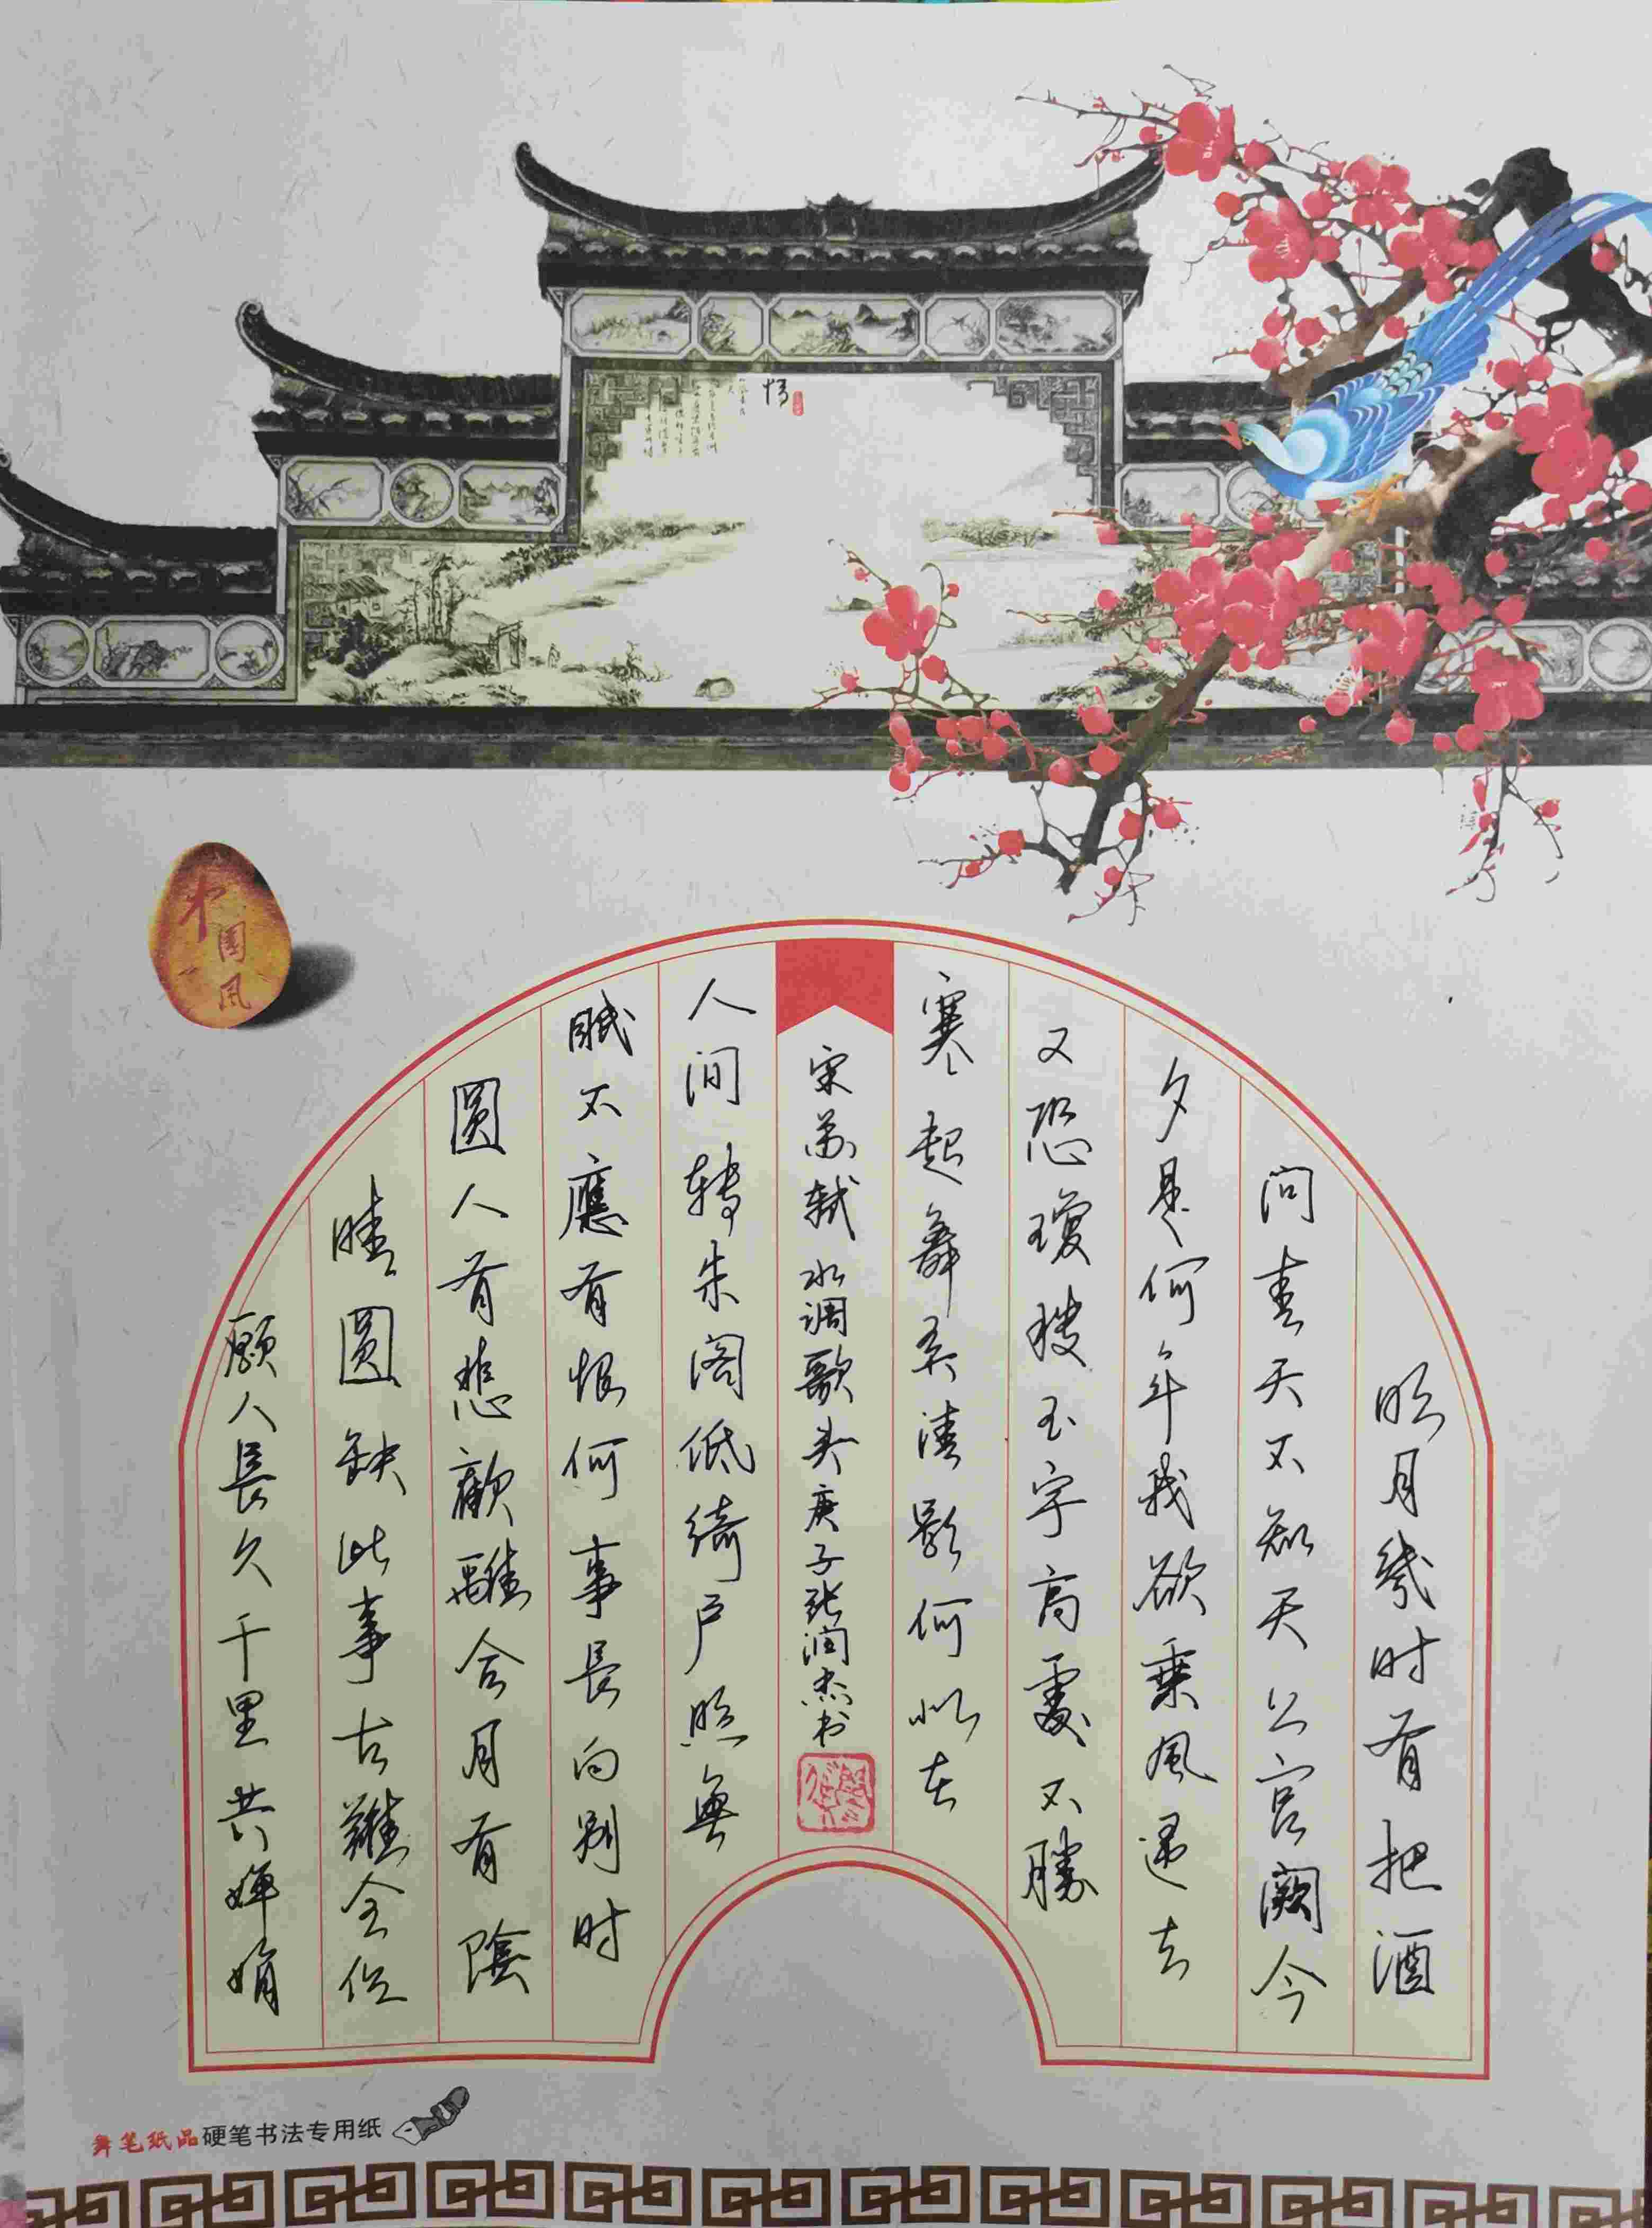 情
中国风
明月幾时有把酒
问青天不知天上宫阙今
夕是何年我欲乘風還去
又恐瓊楼玉宇高處不勝
寒起舞弄清影何似在
宋苏轼水调歌头庚子张润杰书
人间转朱阁低绮户照無
眠不應有恨何事長向别时
圆人有悲歡離合月有陰
晴圆缺此事古難全但
願人長久千里共婵娟
舞笔纸品硬笔书法专用纸